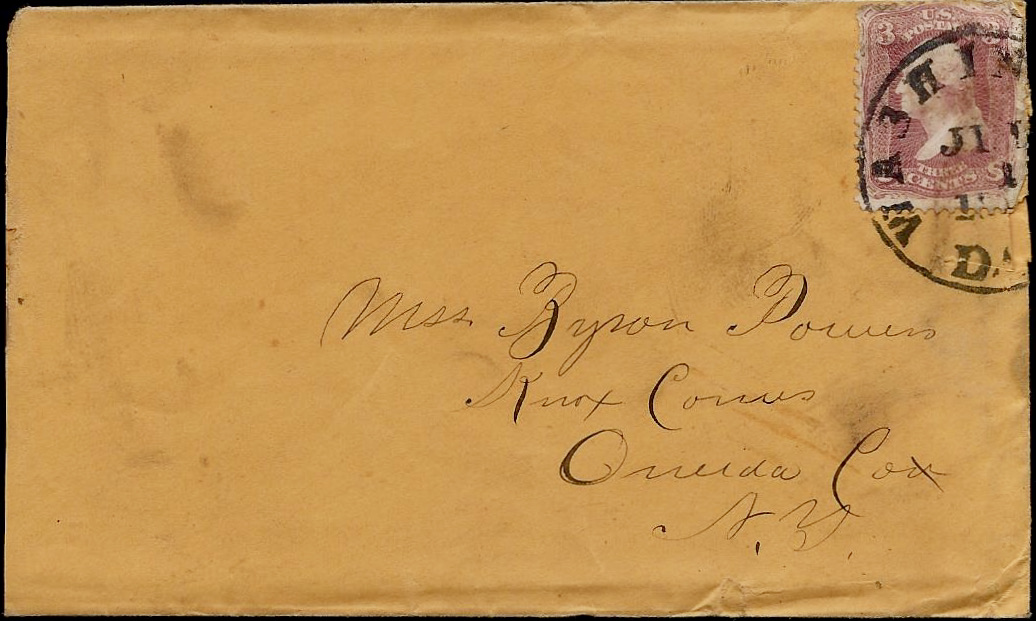 U.S.
POSTAGE
3 3
THREE
CENTS
WASHIN
DA
Mrs. Byron Powers
Knox Corners
Oneida Co
N. Y.